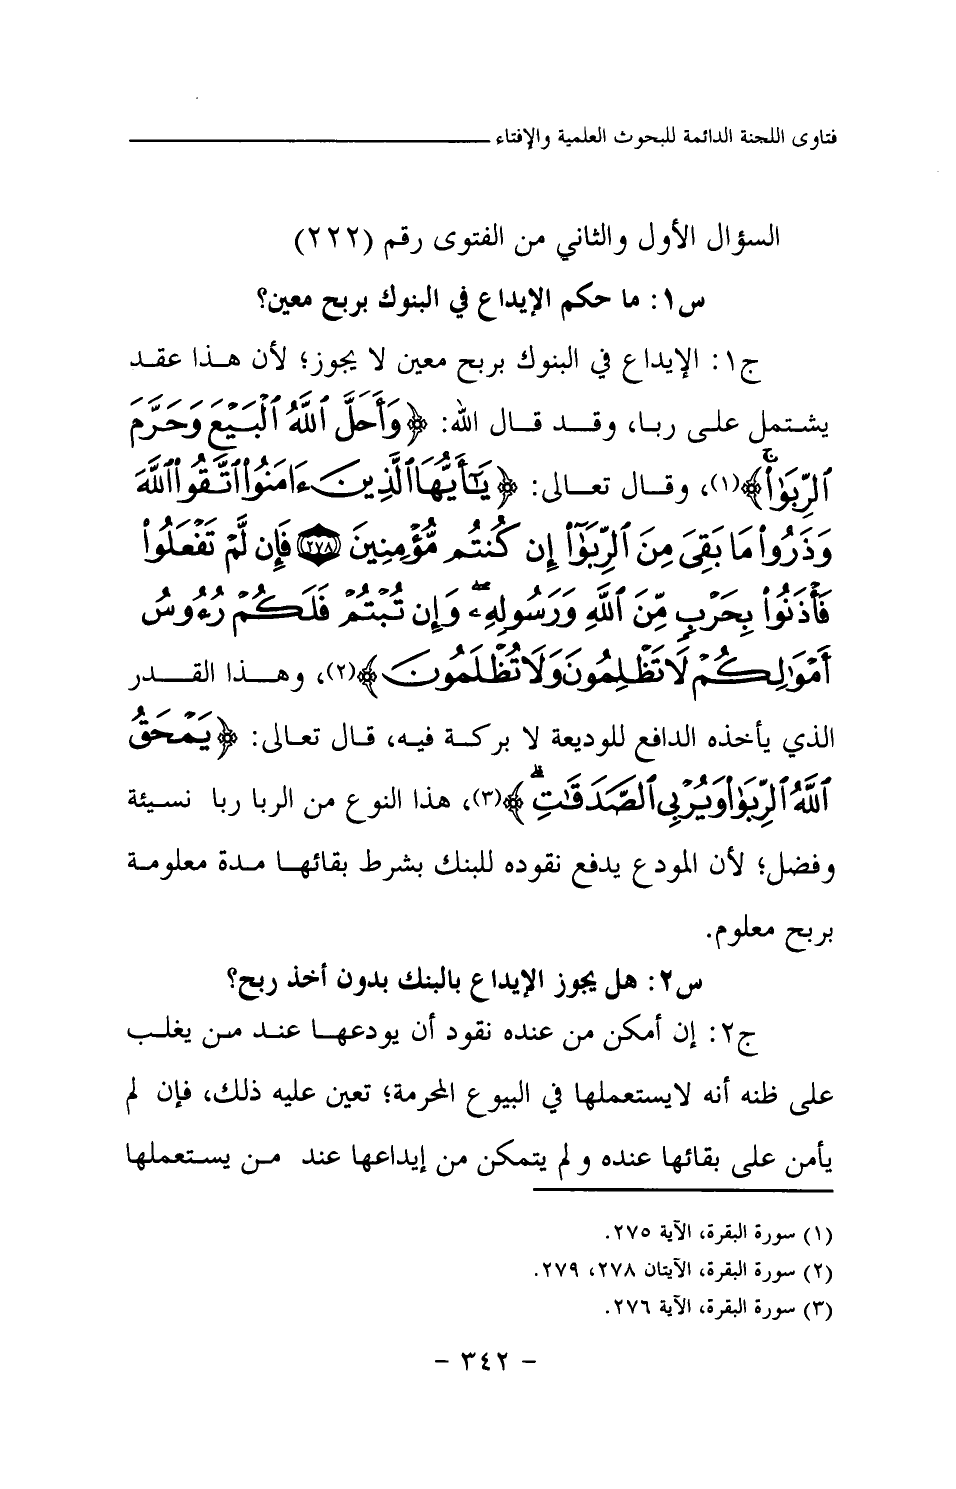 فتاوى اللجنة الدائمة للبحوث العلمية والإفتاء
السؤال الأول والثاني من الفتوى رقم (٢٢٢)
س١: ما حكم الإيداع في البنوك بربح معين؟
ج١: الإيداع في البنوك بربح معين لا يجوز؛ لأن هذا عقد
يشتمل على ربا، وقد قال الله: ﴿وَأَحَلَّ ٱللَّهُ ٱلْبَيْعَ وَحَرَّمَ
ٱلرِّبَوٰا۟ۚ﴾(١)، وقال تعالى: ﴿يَـٰٓأَيُّهَا ٱلَّذِينَ ءَامَنُوا۟ ٱتَّقُوا۟ ٱللَّهَ
وَذَرُوا۟ مَا بَقِىَ مِنَ ٱلرِّبَوٰٓا۟ إِن كُنتُم مُّؤْمِنِينَ ﴿٢٧٨﴾ فَإِن لَّمْ تَفْعَلُوا۟
فَأْذَنُوا۟ بِحَرْبٍ مِّنَ ٱللَّهِ وَرَسُولِهِۦۖ وَإِن تُبْتُمْ فَلَكُمْ رُءُوسُ
أَمْوَٰلِكُمْ لَا تَظْلِمُونَ وَلَا تُظْلَمُونَ﴾(٢)، وهذا القدر
الذي يأخذه الدافع للوديعة لا بركة فيه، قال تعالى: ﴿يَمْحَقُ
ٱللَّهُ ٱلرِّبَوٰا۟ وَيُرْبِى ٱلصَّدَقَـٰتِۗ﴾(٣)، هذا النوع من الربا ربا نسيئة
وفضل؛ لأن المودع يدفع نقوده للبنك بشرط بقائها مدة معلومة
بربح معلوم.
س٢: هل يجوز الإيداع بالبنك بدون أخذ ربح؟
ج٢: إن أمكن من عنده نقود أن يودعها عند من يغلب
على ظنه أنه لايستعملها في البيوع المحرمة؛ تعين عليه ذلك، فإن لم
يأمن على بقائها عنده ولم يتمكن من إيداعها عند من يستعملها
(١) سورة البقرة، الآية ٢٧٥.
(٢) سورة البقرة، الآيتان ٢٧٨، ٢٧٩.
(٣) سورة البقرة، الآية ٢٧٦.
- ٣٤٢ -